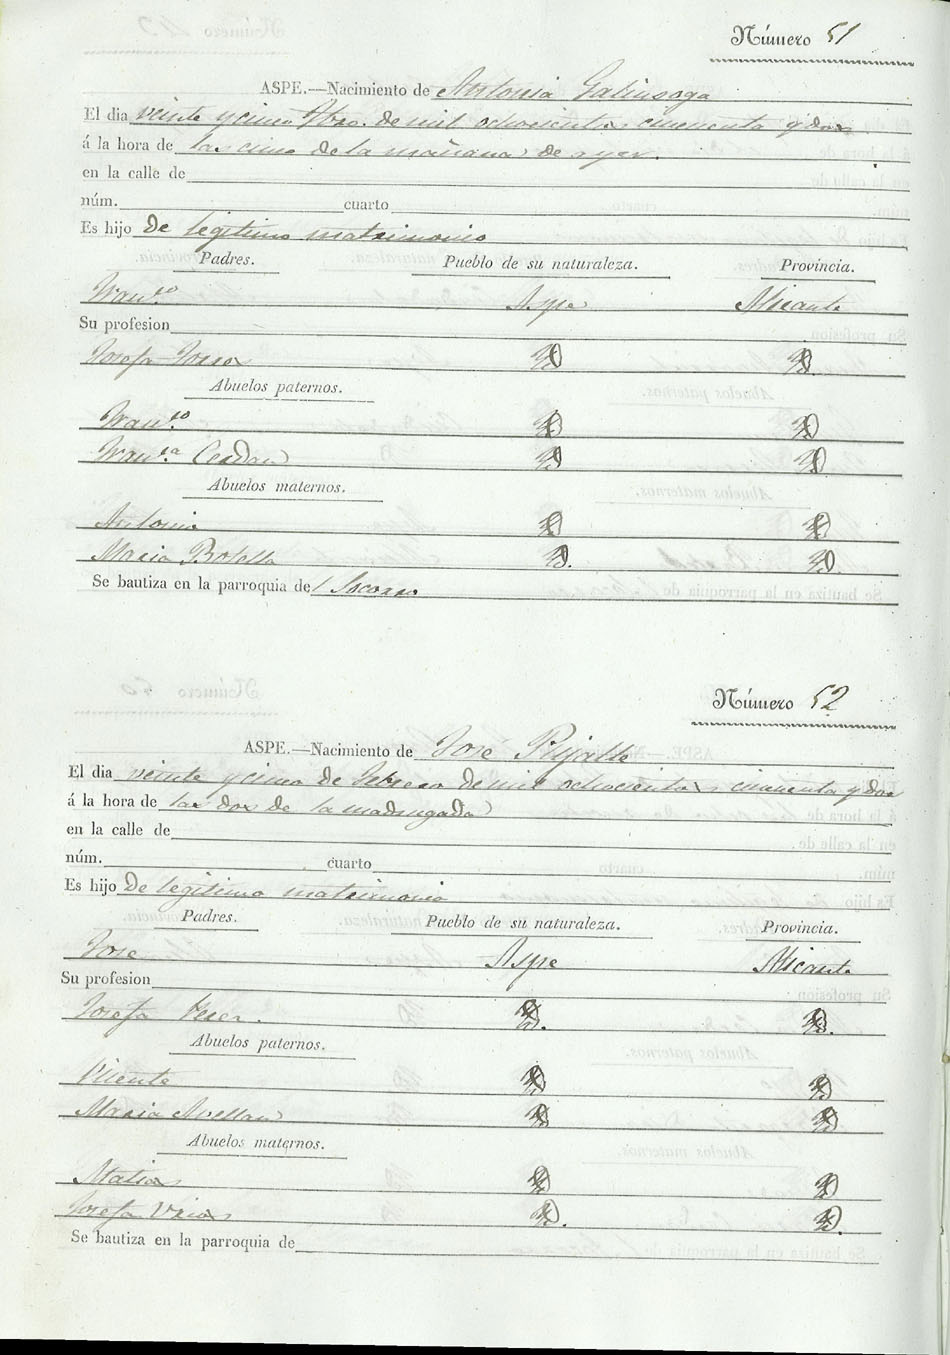 Número 51
ASPE.—Nacimiento de Antonia Galinsoga
El dia veinte y cinco Fbro. de mil ochocientos cincuenta y dos
á la hora de las cinco de la mañana de ayer.
en la calle de
núm. cuarto
Es hijo de legitimo matrimonio
Padres. Pueblo de su naturaleza. Provincia.
Fran.co Aspe Alicante
Su profesion
Josefa
Abuelos paternos.
Fran.co
Fran.ca Cerdan
Abuelos maternos.
Antonio
Maria Botella
Se bautiza en la parroquia del Socorro
Número 52
ASPE.—Nacimiento de José Pujalte
El dia veinte y cinco de Febrero de mil ochocientos cincuenta y dos
á la hora de las dos de la madrugada
en la calle de
núm. cuarto
Es hijo de legitimo matrimonio
Padres. Pueblo de su naturaleza. Provincia.
Jose Aspe Alicante
Su profesion
Josefa
Abuelos paternos.
Vicente
Maria Avellan
Abuelos maternos.
Matias
Josefa
Se bautiza en la parroquia de